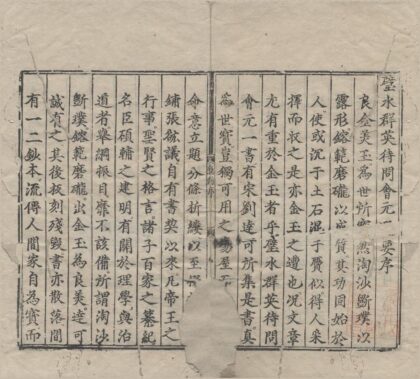 璧水群英待問會元一要序
良金美玉為世所然淘沙斷璞以
露形鎔範磨礲以質其功同始於
人使或沉于土石混于贋似得人采
擇而收之是亦金玉之遭也況文章
尤有重於金玉者乎璧水群英待問
會元一書有宋劉達可所集是書真
為世寳豈獨可用之塲至
命意立題分條折縷以至
鋪張敍議自有書契以來凡帝王之
行事聖賢之格言諸子百家之纂紀
名臣碩輔之建明有關於理學與治
道者舉綱振目靡不該備所謂淘沙
斷璞鎔範磨礲出金玉為良美達可
誠有之其後板刻殘毀書亦散落間
有一二鈔本流傳人間家自為寳而